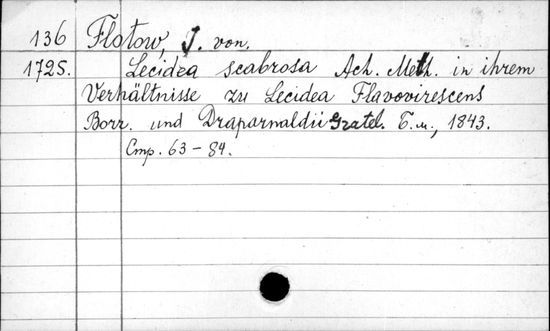 136 Flotow, J. von.
172S. Lecidea scabrosa Ach. Meth. in ihrem
Verhältnisse zu Lecidea Flavovirescens
Borr. und Draparnaldii Gratel. Б.м., 1843.
Cmp. 63-84.